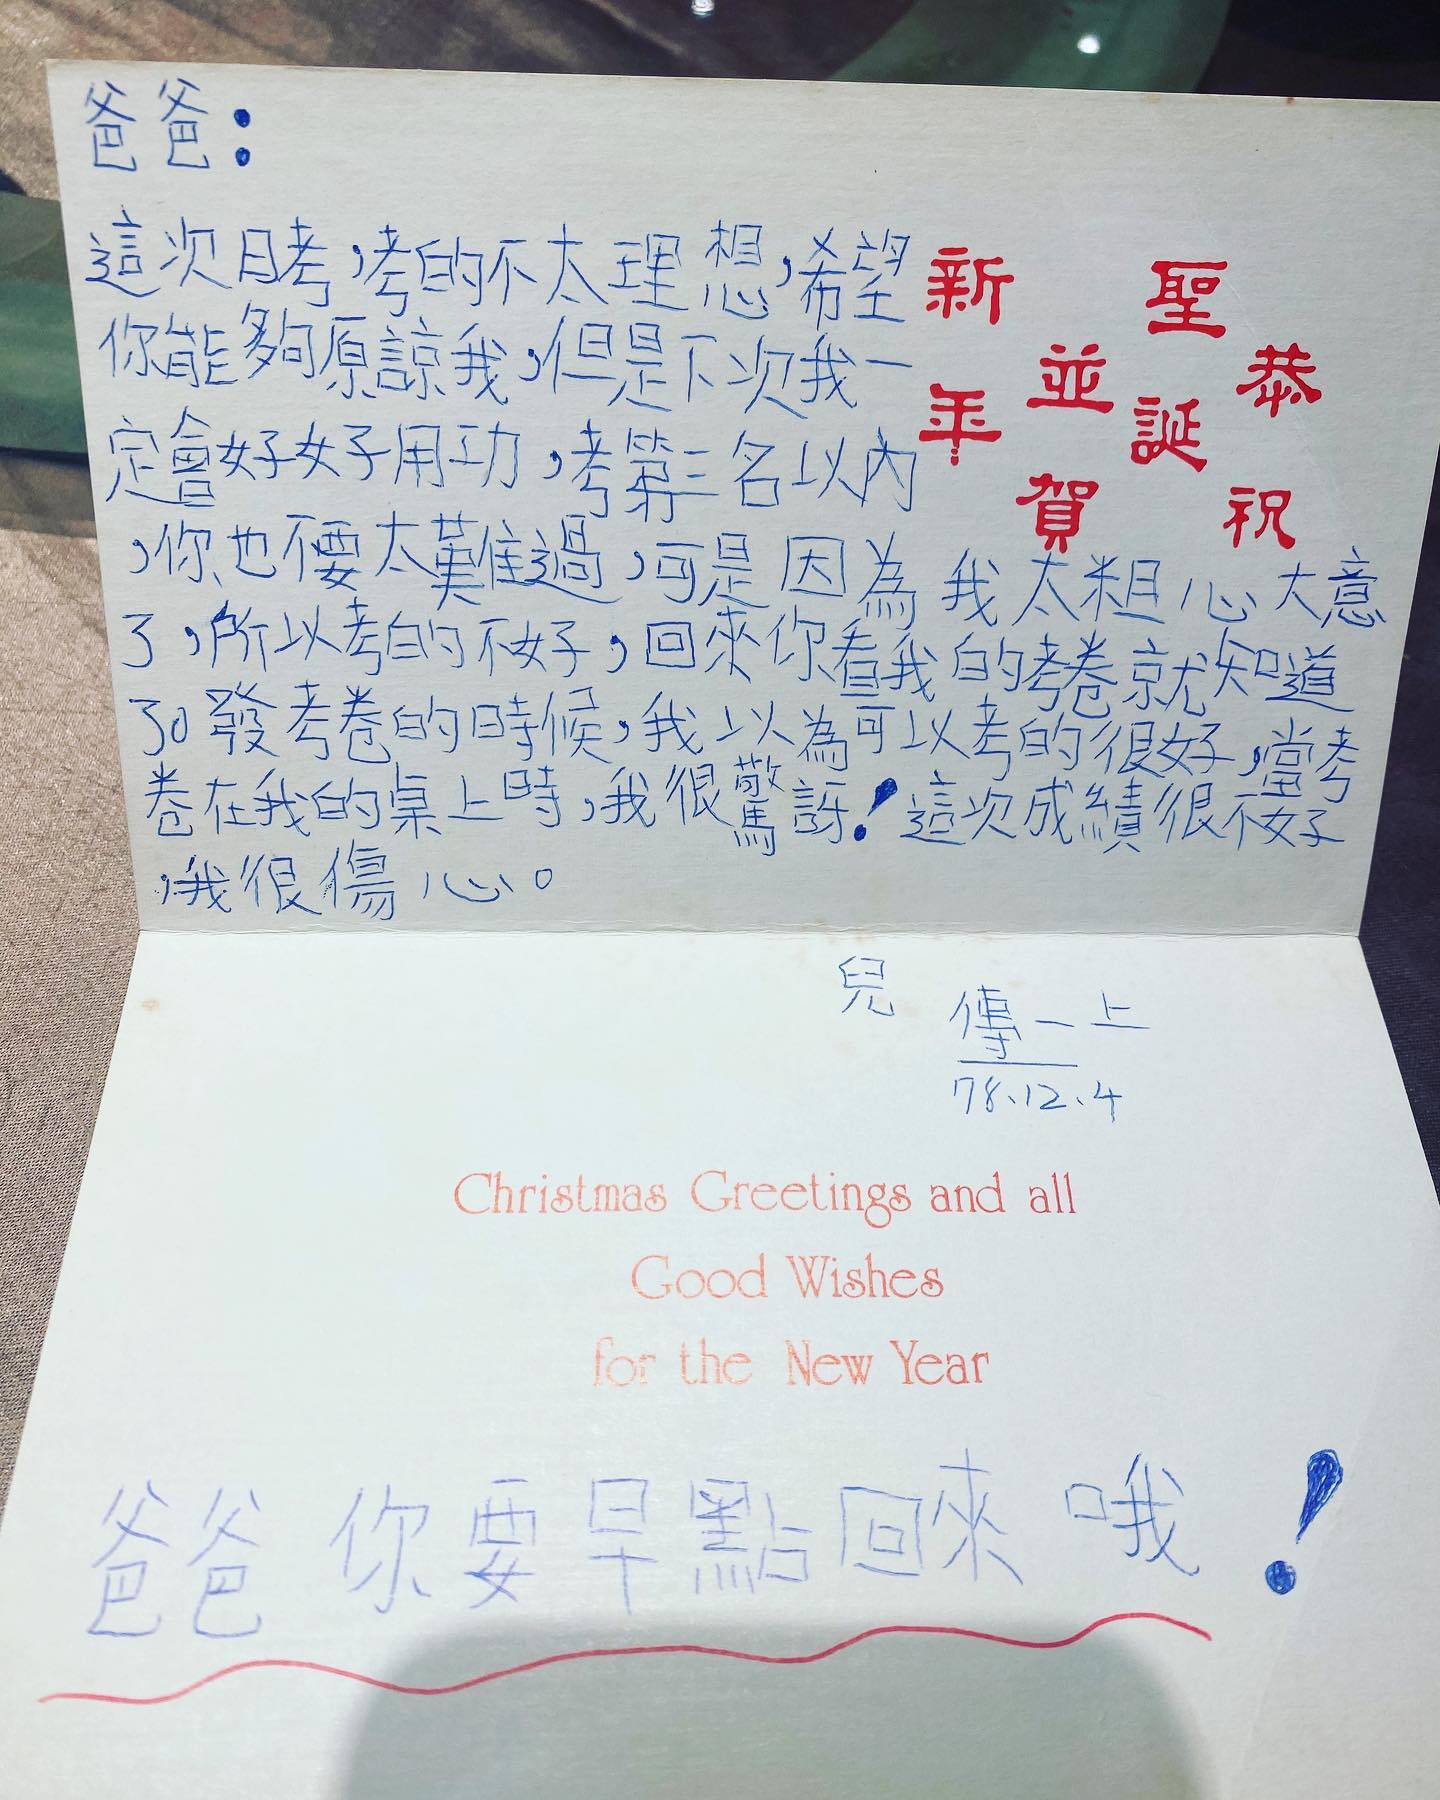 爸爸：
這次月考，考的不太理想，希望
你能夠原諒我，但是下次我一
定會好好用功，考第三名以內
，你也不要太難過，可是因為我太粗心大意
了，所以考的不好，回來你看我的考卷就知道
了。發考卷的時候，我以為可以考的很好，當考
卷在我的桌上時，我很驚訝！這次成績很不好
，我很傷心。
恭祝
聖誕
並賀
新年
兒 傳一上
78.12.4
Christmas Greetings and all
Good Wishes
for the New Year
爸爸你要早點回來哦！